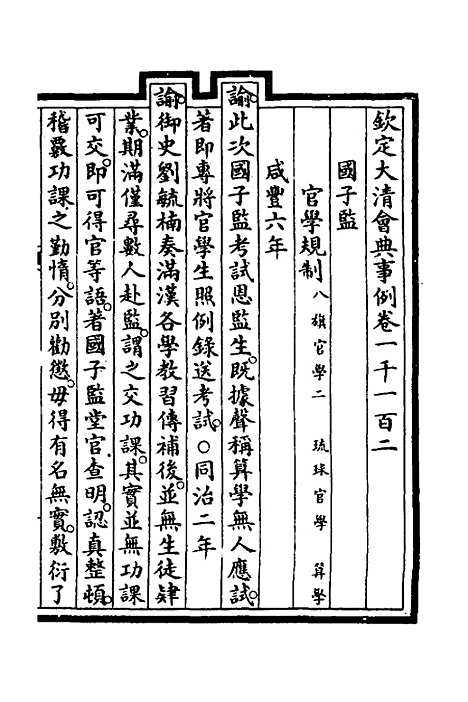 欽定大清會典事例卷一千一百二
國子監
官學規制八旗官學二　琉球官學　算學
咸豐六年
諭。此次國子監考試恩監生。既據聲稱算學無人應試。
著即專將官學生照例錄送考試。○同治二年
諭。御史劉毓楠奏滿漢各學教習傳補後。並無生徒肄
業。期滿僅尋數人赴監。謂之交功課。其實並無功課
可交。即可得官等語。著國子監堂官查明。認真整頓。
稽覈功課之勤惰。分別勸懲。毋得有名無實。敷衍了